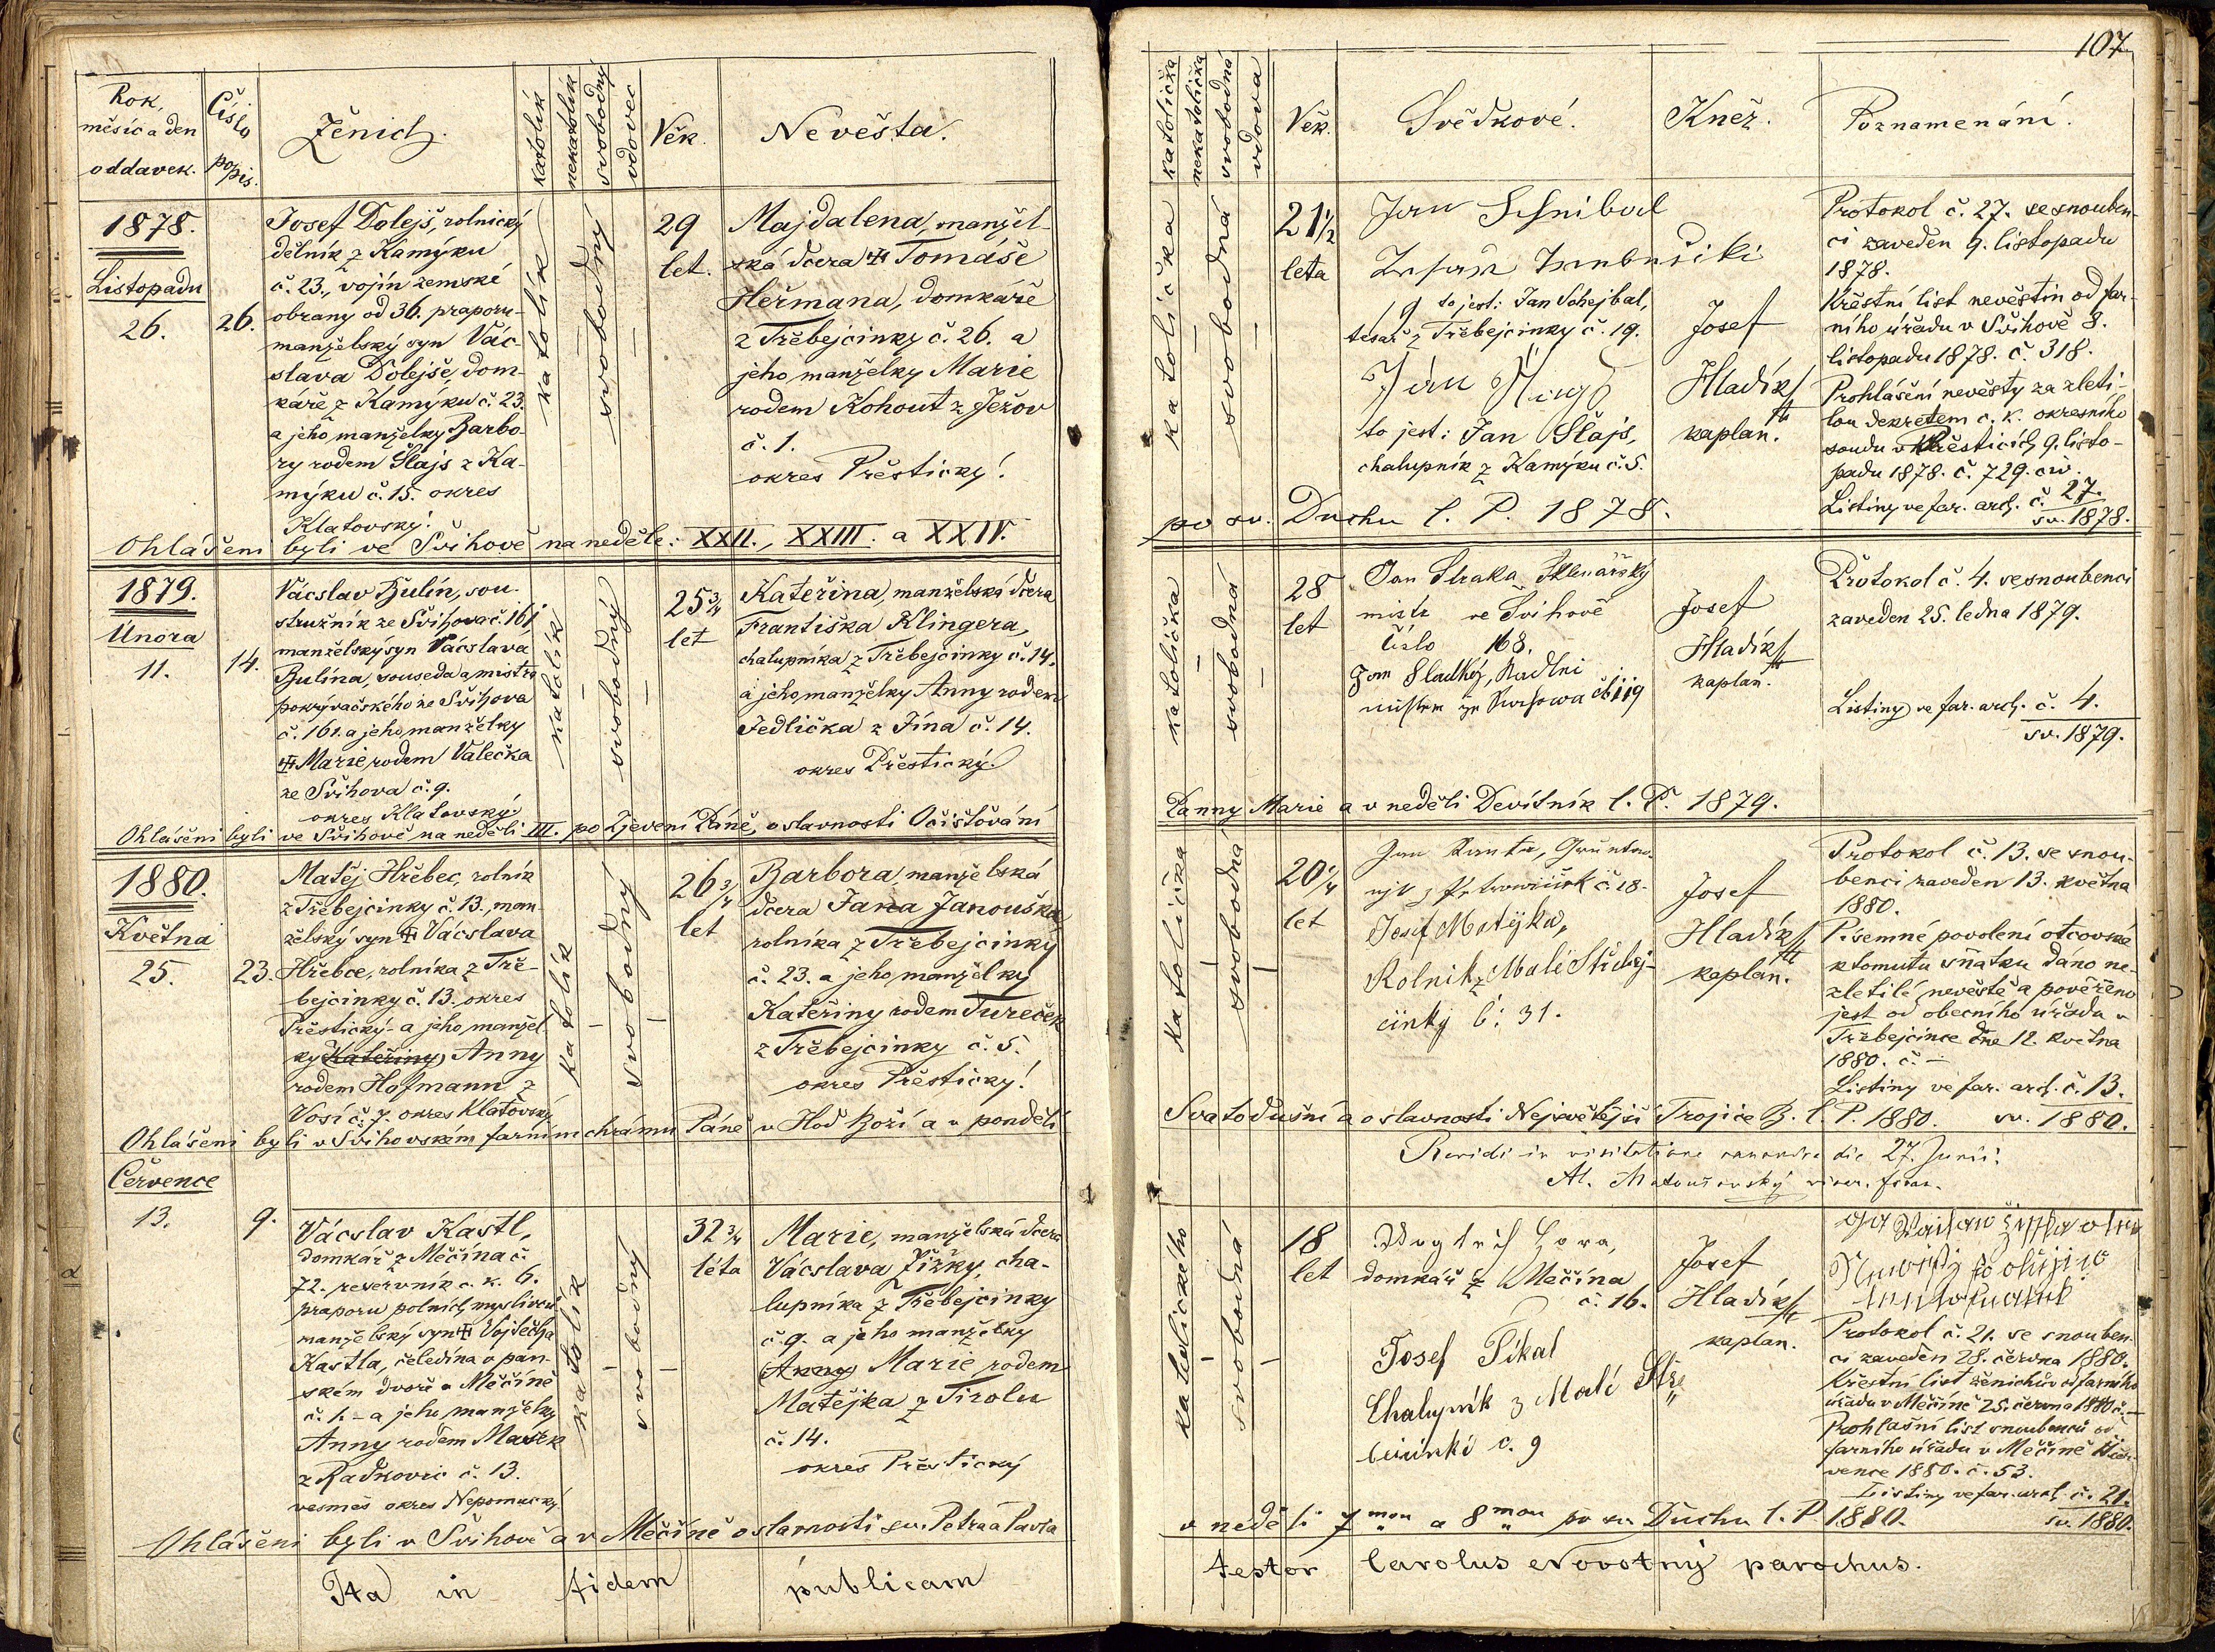 107
Rok,
měsíc a den
oddavek.
Číslo
popis.
Ženich.
katolík
nekatolík
svobodný
vdovec
Věk.
Nevěsta.
katolička
nekatolička
svobodná
vdova
Věk.
Svědkové.
Kněz.
Poznamenání.
1878.
Listopadu
26.
26.
Josef Dolejš, rolnický
dělník z Kamýku
č. 23., vojín zemské
obrany od 36. praporu
manželský syn Vác-
slava Dolejše, dom-
káře z Kamýku č. 23.
a jeho manželky Barbo-
ry rodem Šlajs z Ka-
mýku č. 15. okres
Klatovský.
katolík
svobodný
29
let.
Majdalena, manžel-
ská dcera Tomáše
Heřmana, domkáře
z Třebejcinky č. 26. a
jeho manželky Marie
rodem Kohout z Ježov
č. 1.
okres Přestický!
katolička
svobodná
21 1/2
leta
Jan
to jest: Jan Schejbal,
tesař z Třebejcinky č. 19.
Jan
to jest: Jan Šlajs,
chalupník z Kamýku č. 5.
Josef
Hladík
kaplan.
Protokol č. 27. se snouben-
ci zaveden 9. listopadu
1878.
Křestní list nevěstin od far-
ního úřadu v Švihově 8.
listopadu 1878. č. 318.
Prohlášení nevěsty za zleti-
lou dekretem c. k. okresního
soudu v Přesticích 9. listo-
padu 1878. č. 729. civ.
Listiny ve far. arch. č. 27.
sv. 1878.
Ohlášeni byli ve Švihově na neděle: XXII., XXIII. a XXIV.
po sv. Duchu l. P. 1878.
1879.
Února
11.
14.
Vácslav Bulín, sou-
stružník ze Švihova č. 161
manželský syn Vácslava
Bulína, souseda a mistra
pokrývačského ze Švihova
č. 161. a jeho manželky
Marie rodem Valečka
ze Švihova č. 9.
okres Klatovský.
katolík
svobodný
25 3/4
let
Kateřina, manželská dcera
Františka Klingera,
chalupníka z Třebejcinky č. 14.
a jeho manželky Anny rodem
Jedlička z Jína č. 14.
okres Přestický.
katolička
svobodná
28
let
Jan Straka Sklenářský
mistr ve Švihově
Číslo 168.
Jan Sladký,
Josef
Hladík
kaplan.
Protokol č. 4. se snoubenci
zaveden 25. ledna 1879.
Listiny ve far. arch. č. 4.
sv. 1879.
Ohlášeni byli ve Švihově na neděli III. po Zjevení Páně, o slavnosti Očišťování
Panny Marie a v neděli Devítník l. P. 1879.
1880.
Května
25.
23.
Matěj Hřebec, rolník
z Třebejcinky č. 13., man-
želský syn Vácslava
Hřebce, rolníka z Tře-
bejcinky č. 13. okres
Přestický - a jeho manžel-
ky Kateřiny Anny
rodem Hofmann z
Vosí č. 7. okres Klatovský
katolík
svobodný
26 3/4
let
Barbora manželská
dcera Jana Janouška,
rolníka z Třebejcinky
č. 23. a jeho manželky
Kateřiny rodem Tureček
z Třebejcinky č. 5.
okres Přestický!
katolička
svobodná
20 1/4
let
Jan
č. 28.
Josef Matějka,
Rolník z Malé Střebej-
cinky č: 31.
Josef
Hladík
kaplan.
Protokol č. 13. se snou-
benci zaveden 13. května
1880.
Písemné povolení otcovské
k tomuto sňatku dáno ne-
zletilé nevěstě a pověřeno
jest od obecního úřadu v
Třebejcince dne 12. května
1880. č. –
Listiny ve far. arch. č. 13.
sv. 1880.
Ohlášeni byli v Švihovském farním chrámu Páně v Hod Boží a v pondělí
Svatodušní a o slavnosti Nejsvětější Trojice B. l. P. 1880.
Revidi in visitatione canonica die 27. Junii.
Července
13.
9.
Vácslav Kastl,
domkář z Měčína č.
72. reservník c. k. 6.
praporu polních myslivců
manželský syn Vojtěcha
Kastla, čeledína v pan-
ském dvoře v Měčíně
č. 1. - a jeho manželky
Anny rodem Mašek
z Radkovic č. 13.
vesměs okres Nepomucký.
katolík
svobodný
32 3/4
léta
Marie, manželská dcera
Vácslava Žižky, cha-
lupníka z Třebejcinky
č. 9. a jeho manželky
Anny Marie rodem
Matějka z Tirolu
č. 14.
okres Přestický
katolického
svobodná
18
let
domkář z Měčína
č. 16.
Josef Pikal
Chalupník z Malé Stře
č. 9
Josef
Hladík
kaplan.
Protokol č. 21. se snouben-
ci zaveden 28. června 1880.
Křestní list ženichův od farního
úřadu v Měčíně 25. června 1880 č. –
Prohlašní list snoubenců od
farního úřadu v Měčíně
vence 1880. č. 53.
Listiny ve far. arch. č. 21.
sv. 1880.
Ohlášeni byli v Švihově a v Měčíně o slavnosti sv. Petra a Pavla
v neděli 7mou a 8mou po sv. Duchu l. P. 1880.
Ita in fidem publicam
testor Carolus Novotný parochus.